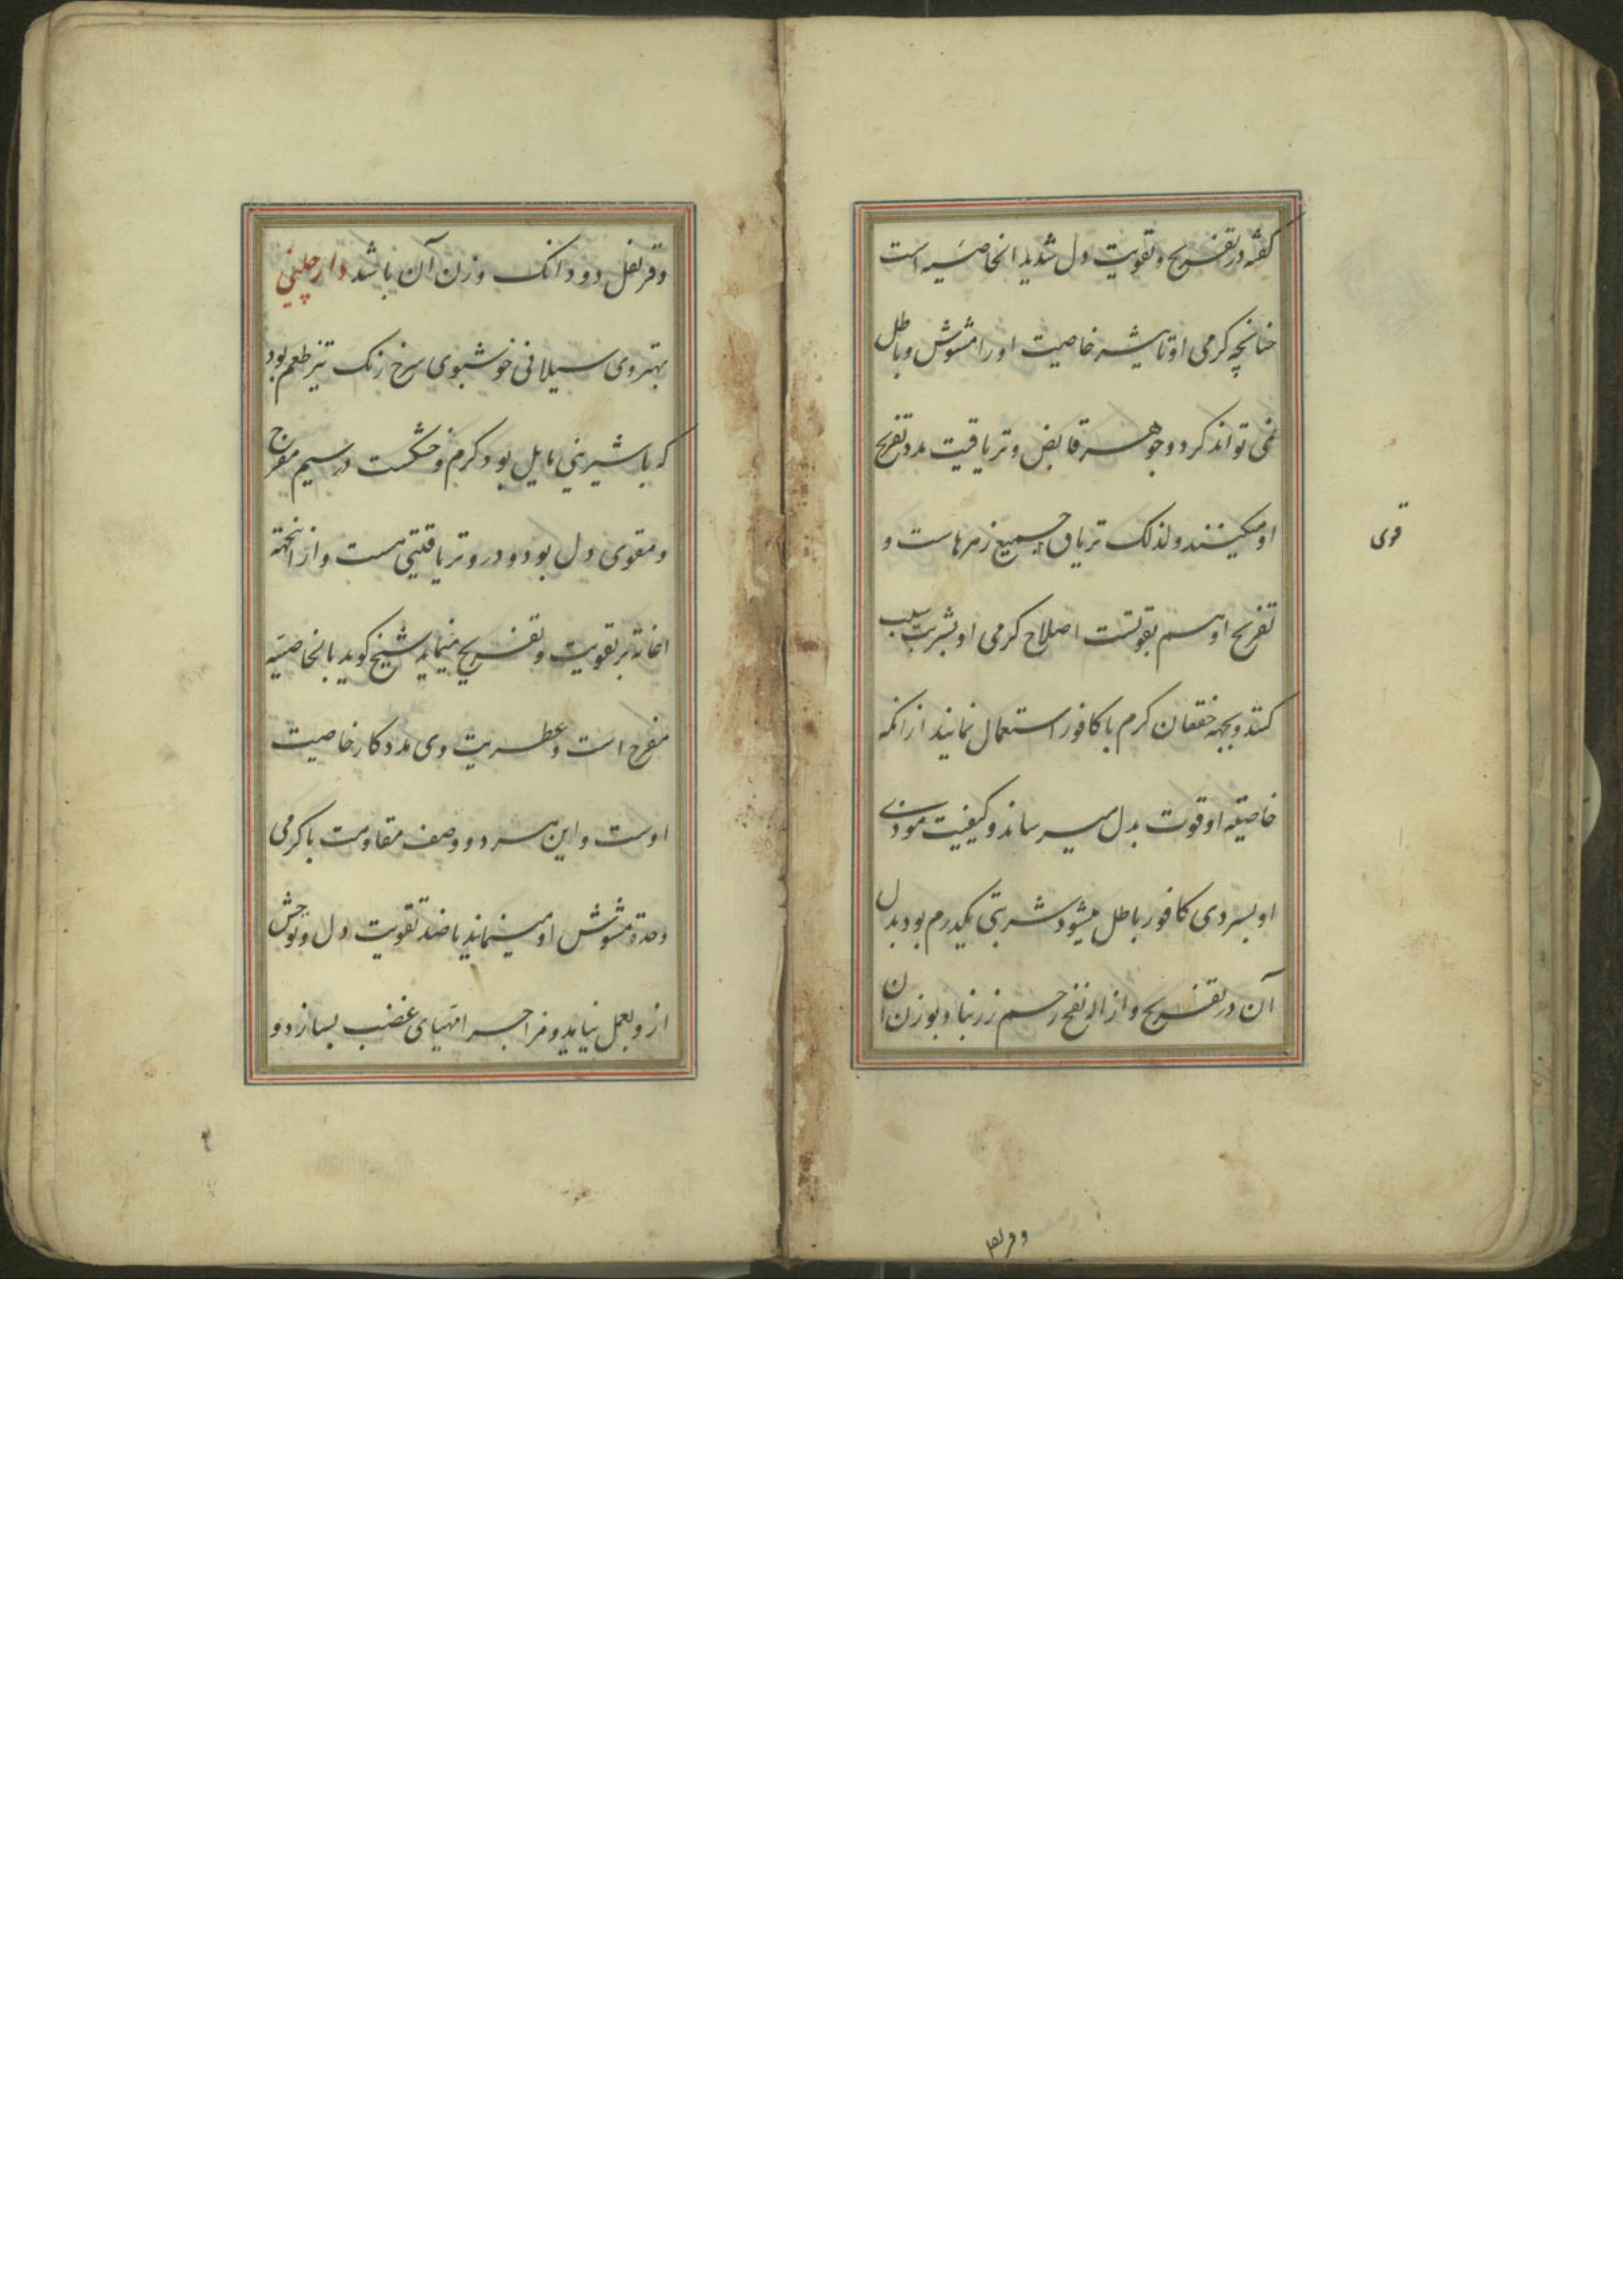 گفته در تفریح و تقویت دل شدید الخاصیه است
چنانچه کرمی او تاثیر خاصیت او را مشوش و باطل
نمی تواند کرد و جوهر قابض و تریاقیت مدد تفریح
او میکنند و لذلک تریاق جمیع زهرهاست و
قوی
تفریح او هم بقوتست اصلاح کرمی او بشربت سیب
کنند و بجهة خفقان کرم با کافور استعمال نمایند از انکه
خاصیة او قوت بدل میرساند و کیفیت موذی
او بسردی کافور باطل میشود شربتی یکدرم بود بدل
آن در تفریح و ازاله نفخ رحم زرنباد بوزن آن
وقرنفل
وقرنفل دو دانک وزن آن باشد دارچینی
بهتر وی سیلانی خوشبوی سرخ رنک تیز طعم بود
که با شیرینی مایل بود کرم و خشکست در سیم مفرح
و مقوی دل بود و درو تریاقیتی هست و از انجهة
اعانة بر تقویت و تفریح مینماید شیخ کوید بالخاصیه
مفرح است و عطریت وی مددکار خاصیت
اوست و این هر دو وصف مقاومت با کرمی
وحدة مشوش او مینمایند تا ضد تقویت دل و توحش
ازو بعمل نیاید و مزاج را مهیای غضب بسازد و